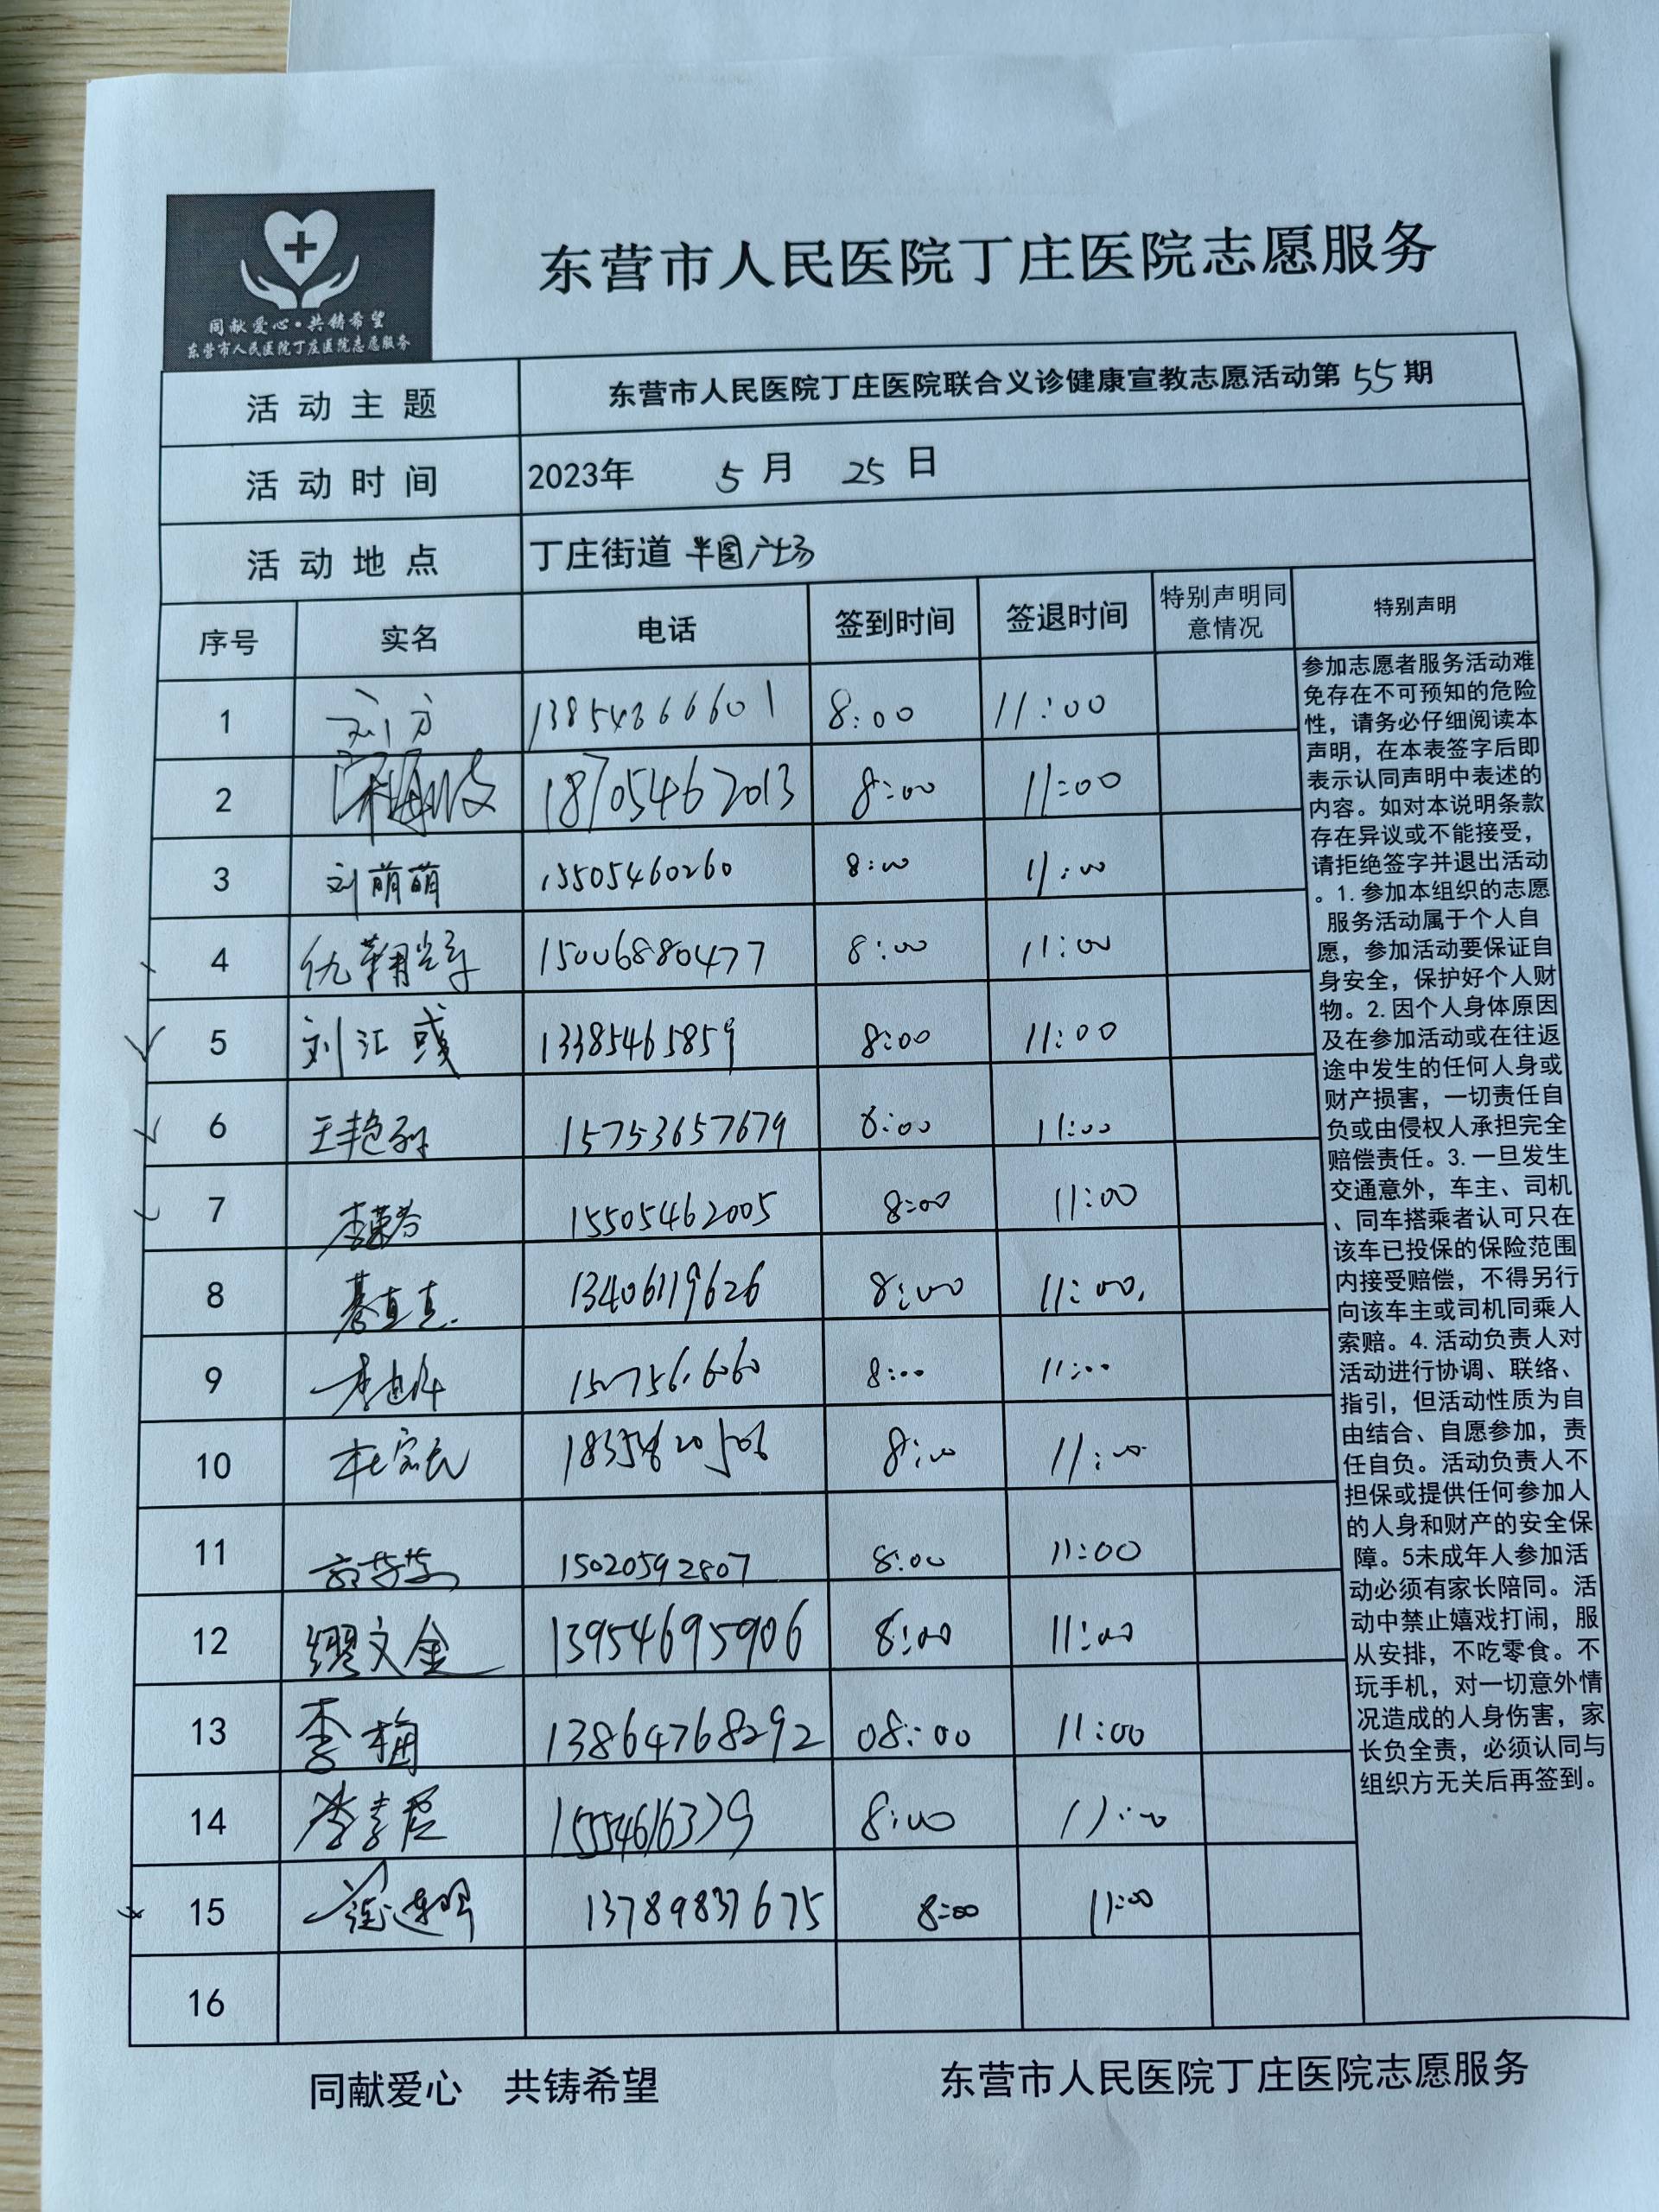 同献爱心·共铸希望
东营市人民医院丁庄医院志愿服务
东营市人民医院丁庄医院志愿服务
活动主题 东营市人民医院丁庄医院联合义诊健康宣教志愿活动第55期
活动时间 2023年 5月 25日
活动地点 丁庄街道 半园广场
序号 实名 电话 签到时间 签退时间 特别声明同意情况 特别声明
1 刘方 13854666601 8:00 11:00
2 18705462013 8:00 11:00
3 刘萌萌 15505460260 8:00 11:00
4 仇翱 15006880477 8:00 11:00
5 刘汇彧 13385465859 8:00 11:00
6 王艳 15753657679 8:00 11:00
7 李荣芬 15505462005 8:00 11:00
8 綦真真 13406119626 8:00 11:00
9 李 8:00 11:00
10 杜宗民 8:00 11:00
11 15020592807 8:00 11:00
12 缪文金 13954695906 8:00 11:00
13 李梅 13864768292 08:00 11:00
14 李 8:00 11:00
15 13789837675 8:00 11:00
16
参加志愿者服务活动难
免存在不可预知的危险
性，请务必仔细阅读本
声明，在本表签字后即
表示认同声明中表述的
内容。如对本说明条款
存在异议或不能接受，
请拒绝签字并退出活动
。1.参加本组织的志愿
服务活动属于个人自
愿，参加活动要保证自
身安全，保护好个人财
物。2.因个人身体原因
及在参加活动或在往返
途中发生的任何人身或
财产损害，一切责任自
负或由侵权人承担完全
赔偿责任。3.一旦发生
交通意外，车主、司机
、同车搭乘者认可只在
该车已投保的保险范围
内接受赔偿，不得另行
向该车主或司机同乘人
索赔。4.活动负责人对
活动进行协调、联络、
指引，但活动性质为自
由结合、自愿参加，责
任自负。活动负责人不
担保或提供任何参加人
的人身和财产的安全保
障。5未成年人参加活
动必须有家长陪同。活
动中禁止嬉戏打闹，服
从安排，不吃零食。不
玩手机，对一切意外情
况造成的人身伤害，家
长负全责，必须认同与
组织方无关后再签到。
同献爱心 共铸希望 东营市人民医院丁庄医院志愿服务